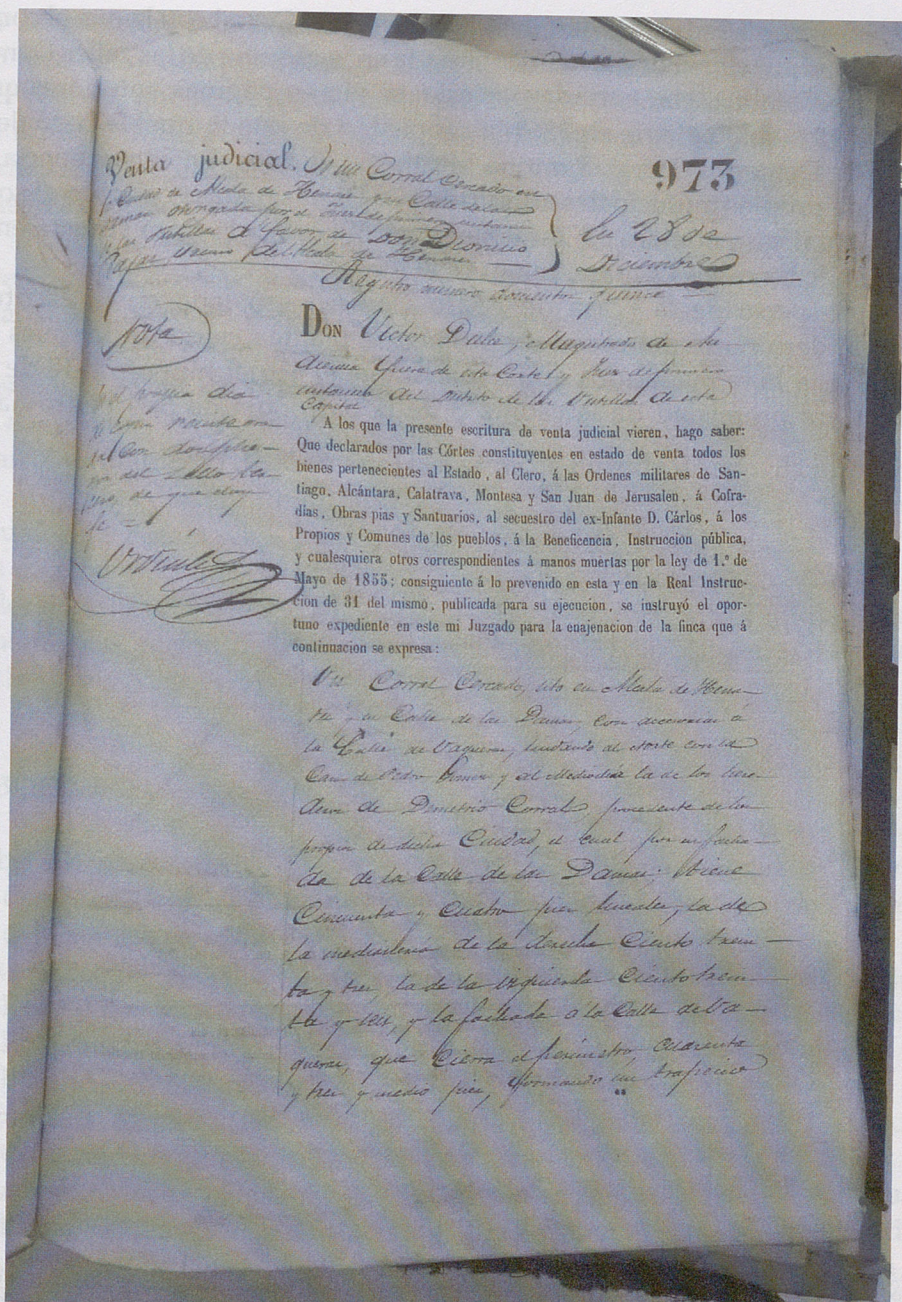 Venta judicial. De un Corral Cercado en
la Ciudad de Alcalá de Henares y su Calle de las
Damas otorgada por el Juez de primera instancia
de las Vistillas a favor de Don Dionisio
Pajar, vecino de Alcalá de Henares
973
En 28 de
Diciembre
Registro numero doscientos quince
Nota
En el propio dia
de
del Sello
de que doy
fe =
DON Victor Dulce, Magistrado de Au-
diencia fuera de esta Corte y Juez de primera
instancia del Distrito de las Vistillas de esta
Capital
A los que la presente escritura de venta judicial vieren, hago saber:
Que declarados por las Córtes constituyentes en estado de venta todos los
bienes pertenecientes al Estado, al Clero, á las Ordenes militares de San-
tiago, Alcántara, Calatrava, Montesa y San Juan de Jerusalen, á Cofra-
días, Obras pias y Santuarios, al secuestro del ex-Infante D. Cárlos, á los
Propios y Comunes de los pueblos, á la Beneficencia, Instruccion pública,
y cualesquiera otros correspondientes á manos muertas por la ley de 1.º de
Mayo de 1855; consiguiente á lo prevenido en esta y en la Real Instruc-
cion de 31 del mismo, publicada para su ejecucion, se instruyó el opor-
tuno expediente en este mi Juzgado para la enajenacion de la finca que á
continuacion se expresa:
Un Corral Cercado, sito en Alcalá de Hena-
res y su Calle de las Damas, con accesorias á
la Calle de Vaqueras, lindando al Norte con la
Casa de Pedro Gomez y al Mediodia la de los here-
deros de Demetrio Corral, procedente de los
propios de dicha Ciudad, el cual por su facha-
da de la Calle de las Damas, tiene
Cincuenta y Cuatro pies lineales, la de
la medianeria de la derecha Ciento trein-
ta y tres, la de la izquierda Ciento trein-
ta y seis, y la fachada á la Calle de Va-
queras, que Cierra el perimetro, Cuarenta
y tres y medio pies, formando un trapecio